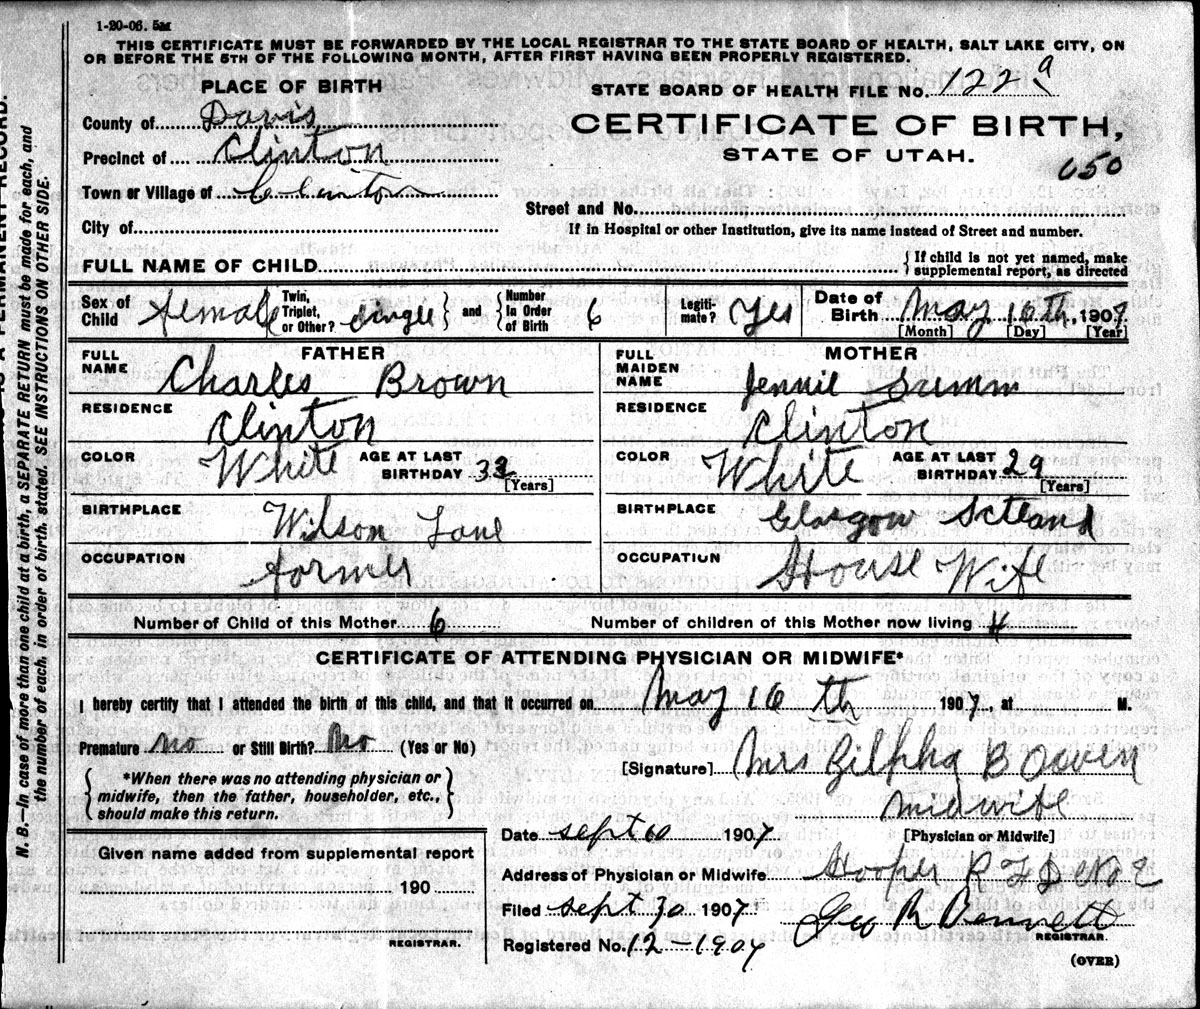 1-20-06. 5m
THIS CERTIFICATE MUST BE FORWARDED BY THE LOCAL REGISTRAR TO THE STATE BOARD OF HEALTH, SALT LAKE CITY, ON
OR BEFORE THE 5TH OF THE FOLLOWING MONTH, AFTER FIRST HAVING BEEN PROPERLY REGISTERED.
PLACE OF BIRTH
STATE BOARD OF HEALTH FILE NO. 122 a
County of Davis
CERTIFICATE OF BIRTH,
Precinct of Clinton
STATE OF UTAH.
650
Town or Village of Clinton
Street and No.
City of
If in Hospital or other Institution, give its name instead of Street and number.
FULL NAME OF CHILD
{If child is not yet named, make
supplemental report, as directed
Sex of Child Female Twin, Triplet, or Other? single } and { Number In Order of Birth 6 Legiti-mate? Yes Date of Birth May 16th, 1907
[Month] [Day] [Year]
FATHER
MOTHER
FULL NAME Charles Brown
FULL MAIDEN NAME Jennie
RESIDENCE Clinton
RESIDENCE Clinton
COLOR White AGE AT LAST BIRTHDAY 32 [Years]
COLOR White AGE AT LAST BIRTHDAY 29 [Years]
BIRTHPLACE Wilson Lane
BIRTHPLACE Glasgow Sctland
OCCUPATION Former
OCCUPATION House Wife
Number of Child of this Mother 6
Number of children of this Mother now living 4
CERTIFICATE OF ATTENDING PHYSICIAN OR MIDWIFE*
I hereby certify that I attended the birth of this child, and that it occurred on May 16 th 1907, at M.
Premature No or Still Birth? No (Yes or No)
[Signature] Mrs Zilpha B Owen
midwife
[Physician or Midwife]
{ *When there was no attending physician or
midwife, then the father, householder, etc.,
should make this return. }
Date Sept 1907
Given name added from supplemental report
Address of Physician or Midwife Hooper R F D No
190
Filed Sept 30 1907 Geo R Bennett
REGISTRAR.
REGISTRAR.
Registered No. 12-1907
(OVER)
N. B.—In case of more than one child at a birth, a SEPARATE RETURN must be made for each, and
the number of each, in order of birth, stated. SEE INSTRUCTIONS ON OTHER SIDE.
A PERMANENT RECORD.